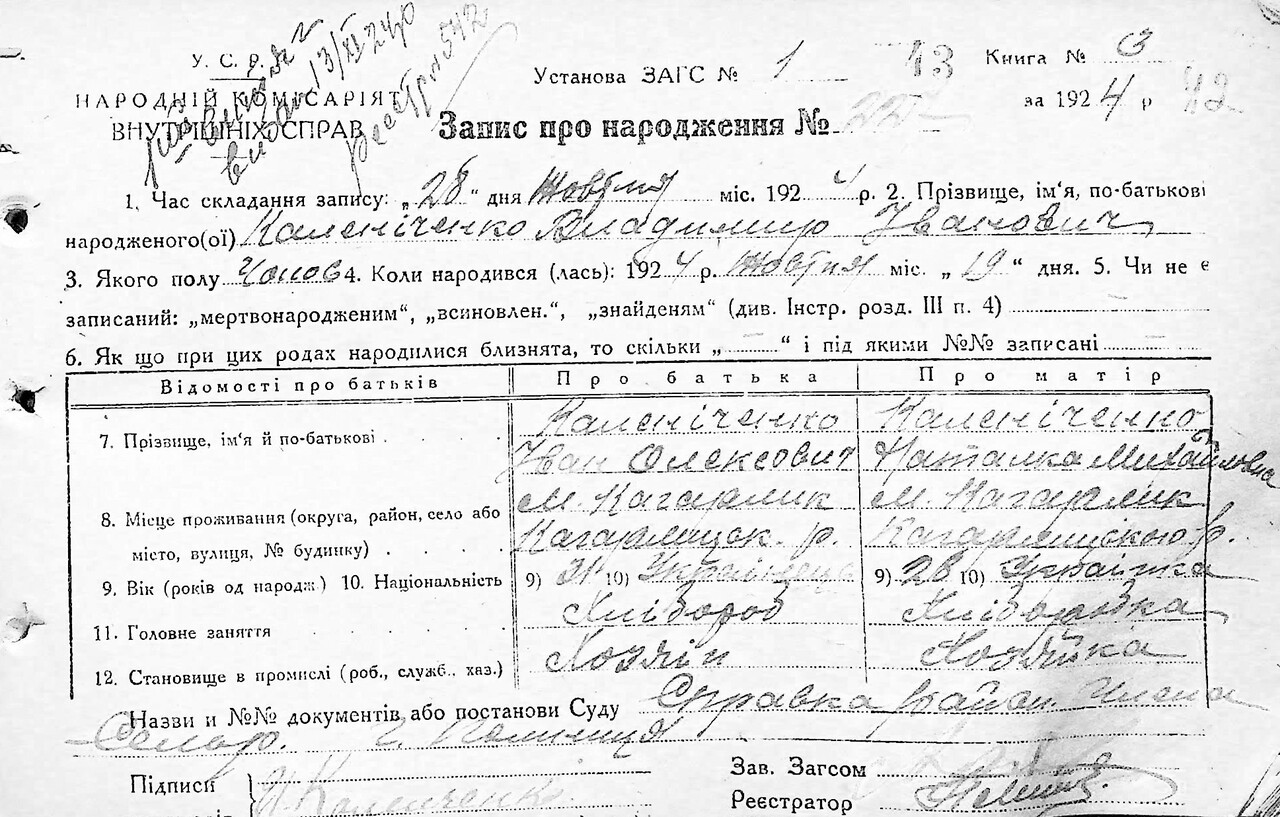 У. С. Р.
НАРОДНІЙ КОМІСАРІЯТ
ВНУТРІШНІХ СПРАВ
13/XI 24 р
542
Установа ЗАГС № 1
43
Книга № 3
за 1924 р
42
Запис про народження №
1. Час складання запису: „28" дня Жовтня міс. 1924 р. 2. Прізвище, ім'я, по-батькові
народженого(ої) Каленіченко Владимир Іванович
3. Якого полу Чолов 4. Коли народився (лась): 1924 р. Жовтня міс. „19" дня. 5. Чи не є
записаний: „мертвонародженим", „всиновлен.", „знайденям" (див. Інстр. розд. III п. 4)
6. Як що при цих родах народилися близнята, то скільки „ — " і під якими №№ записані —
Відомості про батьків Про батька Про матір
7. Прізвище, ім'я й по-батькові Каленіченко Каленіченко
Іван Олексович Наталка Михайловна
8. Місце проживання (округа, район, село або М. Кагарлик М. Кагарлик
місто, вулиця, № будинку) Кагарлицьк. р. Кагарлицкого р.
9. Вік (років од народж.) 10. Національність 9) 31 10) Українець 9) 28 10) Українка
11. Головне заняття Хлібороб Хліборобка
12. Становище в промислі (роб., служб., хаз.) Хозяін Хозяйка
Назви и №№ документів або постанови Суду Справка район.
Підписи
Каленіченко
Зав. Загсом
Реєстратор